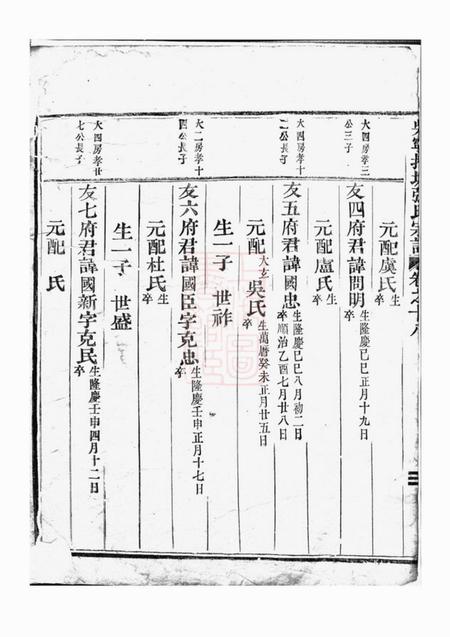 吳寧托塘張氏宗譜 卷之十八
元配虞氏 生 卒
大四房孝三公三子
友四府君諱問明 生隆慶己巳正月十九日 卒
元配盧氏 生 卒
大四房孝十二公長子
友五府君諱國忠 生隆慶己巳八月初二日 卒順治乙酉七月廿八日
元配大玄吳氏 生萬曆癸未正月廿五日 卒
生一子 世祚
大二房孝十四公長子
友六府君諱國臣字克忠 生隆慶壬申正月十七日 卒
元配杜氏 生 卒
生一子 世盛
大四房孝廿七公長子
友七府君諱國新字克民 生隆慶壬申四月十二日 卒
元配 氏